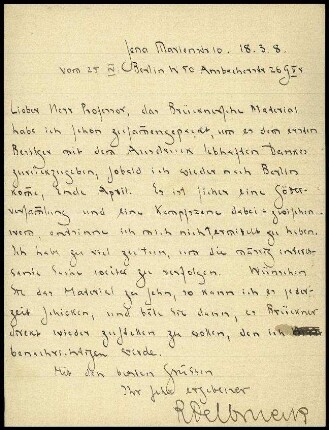 Jena Marienstr 10. 18.3.8.
vom 25 IV Berlin W 50 Ansbacherstr 26 G IV
Lieber Herr Professor, das Brücknersche Material
habe ich schon zusamengepackt, um es dem ersten
Besitzer mit dem Ausdruck lebhaften Dankes
zurückzugeben, sobald ich wieder nach Berlin
kome, Ende April. Es ist sicher eine Götter-
versamlung und eine Kampfszene dabei - zwischen
wem, entsinne ich mich nicht ermittelt zu haben.
Ich habe zu viel zu tun, um die mäßig interes-
sante Sache weiter zu verfolgen. Wünschen
Sie das Material zu sehn, so kann ich es jeder-
zeit schicken, und bitte Sie dann, es Brückner
direkt wieder zustellen zu wollen, den ich
benachrichtigen werde.
Mit den besten Grüssen
Ihr sehr ergebener
R Delbrueck